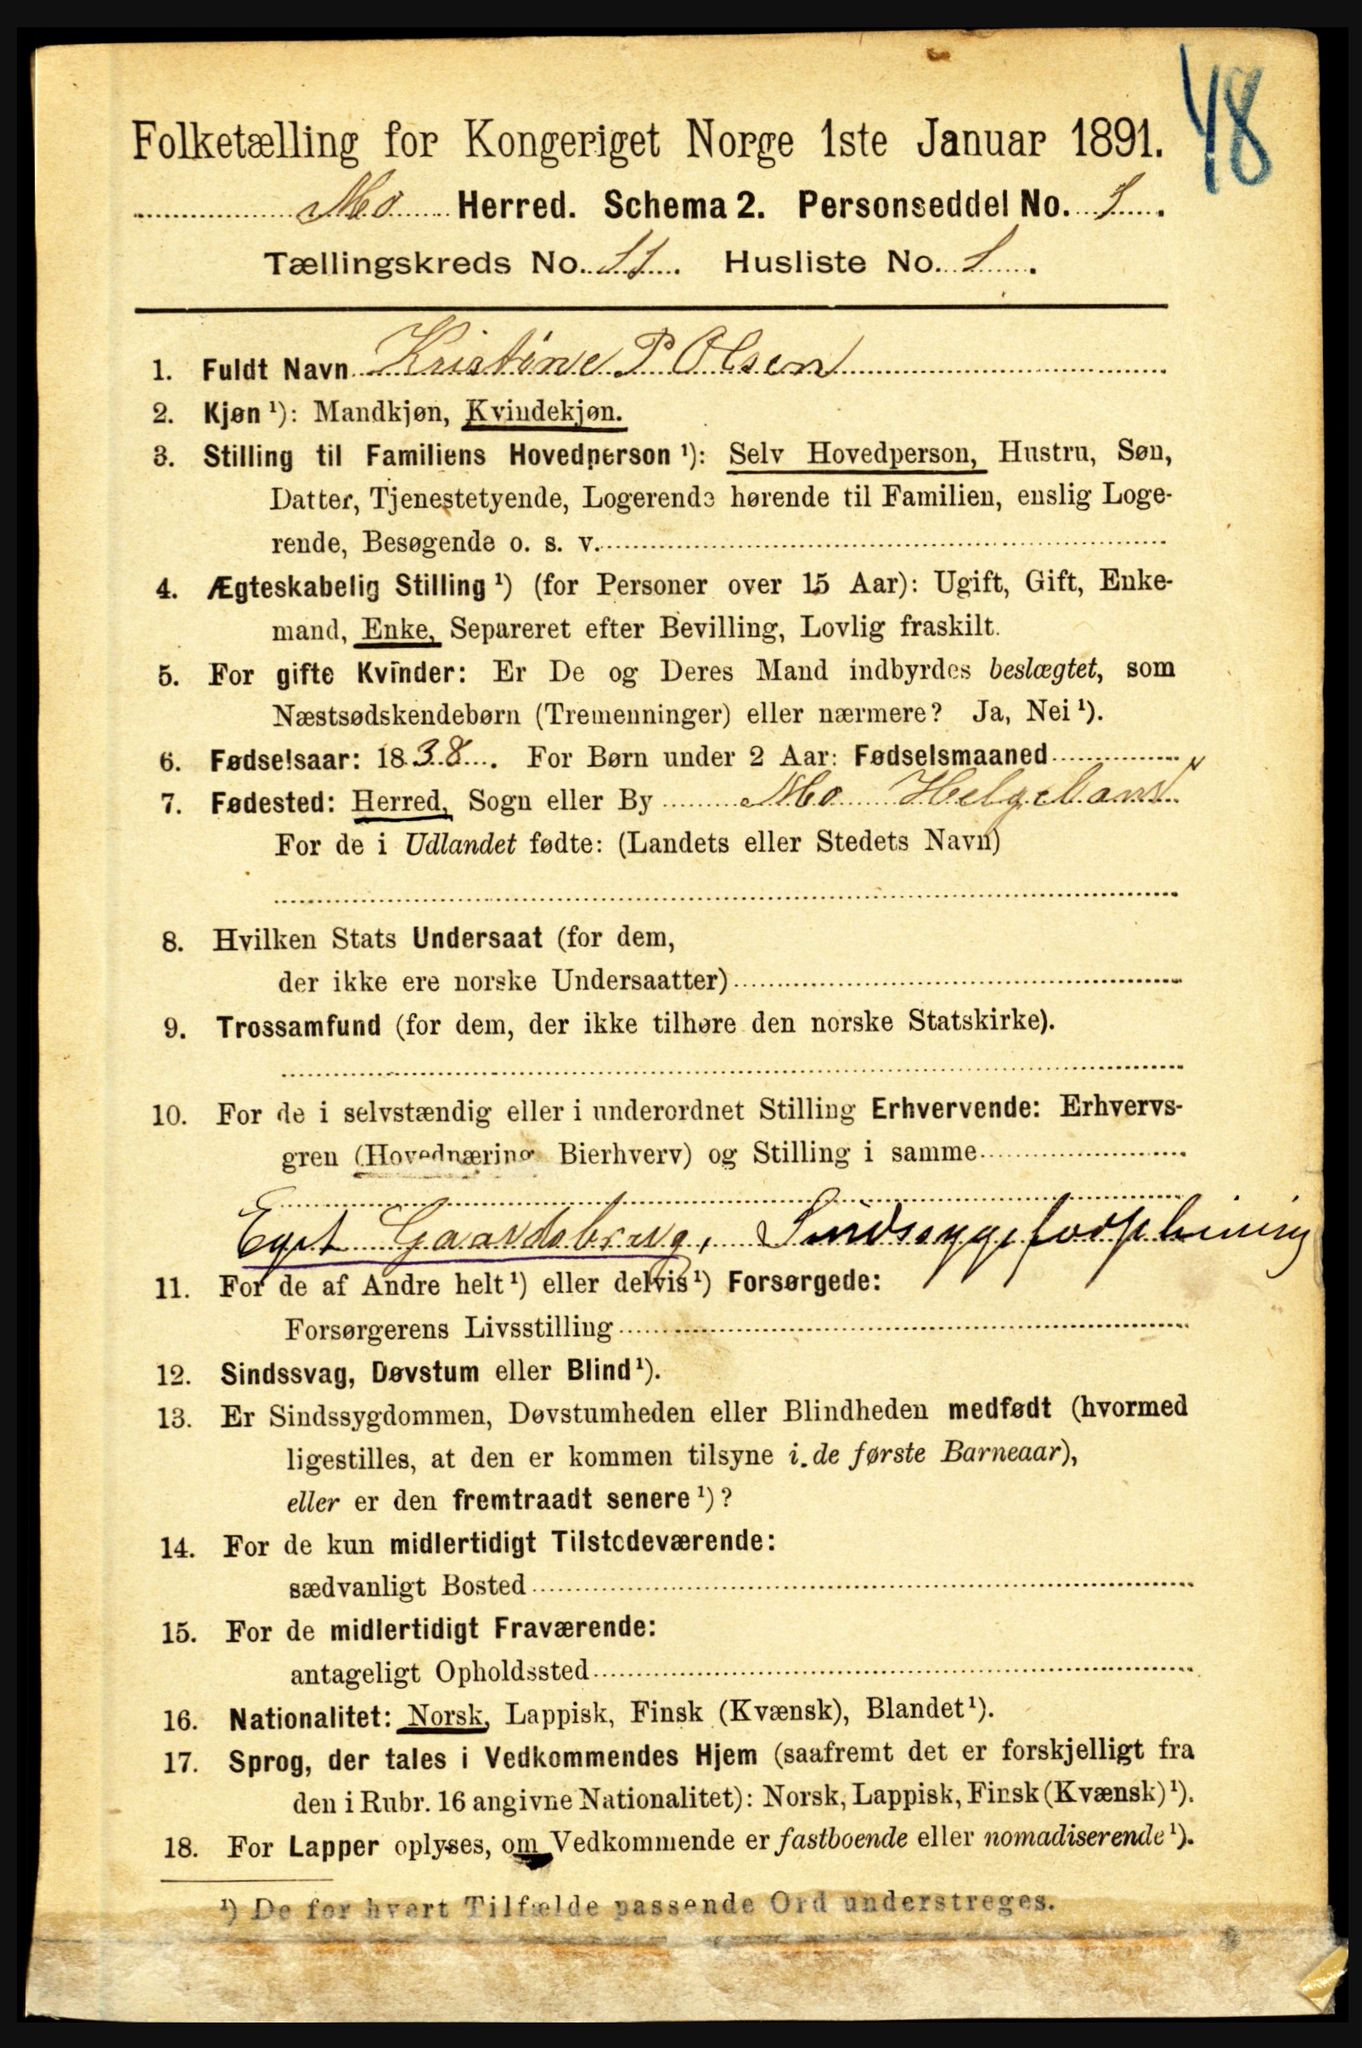 48
Folketælling for Kongeriget Norge 1ste Januar 1891.
Mo Herred. Schema 2. Personseddel No. 1.
Tællingskreds No. 11. Husliste No. 1.
1. Fuldt Navn Kristine P Olsen
2. Kjøn ¹): Mandkjøn, Kvindekjøn.
3. Stilling til Familiens Hovedperson ¹): Selv Hovedperson, Hustru, Søn,
Datter, Tjenestetyende, Logerende hørende til Familien, enslig Loge-
rende, Besøgende o. s. v.
4. Ægteskabelig Stilling ¹) (for Personer over 15 Aar): Ugift, Gift, Enke-
mand, Enke, Separeret efter Bevilling, Lovlig fraskilt.
5. For gifte Kvinder: Er De og Deres Mand indbyrdes beslægtet, som
Næstsødskendebørn (Tremenninger) eller nærmere? Ja, Nei ¹).
6. Fødselsaar: 1838. For Børn under 2 Aar: Fødselsmaaned
7. Fødested: Herred, Sogn eller By Mo Helgeland
For de i Udlandet fødte: (Landets eller Stedets Navn)
8. Hvilken Stats Undersaat (for dem,
der ikke ere norske Undersaatter)
9. Trossamfund (for dem, der ikke tilhøre den norske Statskirke).
10. For de i selvstændig eller i underordnet Stilling Erhvervende: Erhvervs-
gren (Hovednæring, Bierhverv) og Stilling i samme
Eget Gaardsbrug, Sindssygeforplejning
11. For de af Andre helt ¹) eller delvis ¹) Forsørgede:
Forsørgerens Livsstilling
12. Sindssvag, Døvstum eller Blind ¹).
13. Er Sindssygdommen, Døvstumheden eller Blindheden medfødt (hvormed
ligestilles, at den er kommen tilsyne i de første Barneaar),
eller er den fremtraadt senere ¹)?
14. For de kun midlertidigt Tilstedeværende:
sædvanligt Bosted
15. For de midlertidigt Fraværende:
antageligt Opholdssted
16. Nationalitet: Norsk, Lappisk, Finsk (Kvænsk), Blandet ¹).
17. Sprog, der tales i Vedkommendes Hjem (saafremt det er forskjelligt fra
den i Rubr. 16 angivne Nationalitet): Norsk, Lappisk, Finsk (Kvænsk) ¹).
18. For Lapper oplyses, om Vedkommende er fastboende eller nomadiserende ¹).
¹) De for hvert Tilfælde passende Ord understreges.